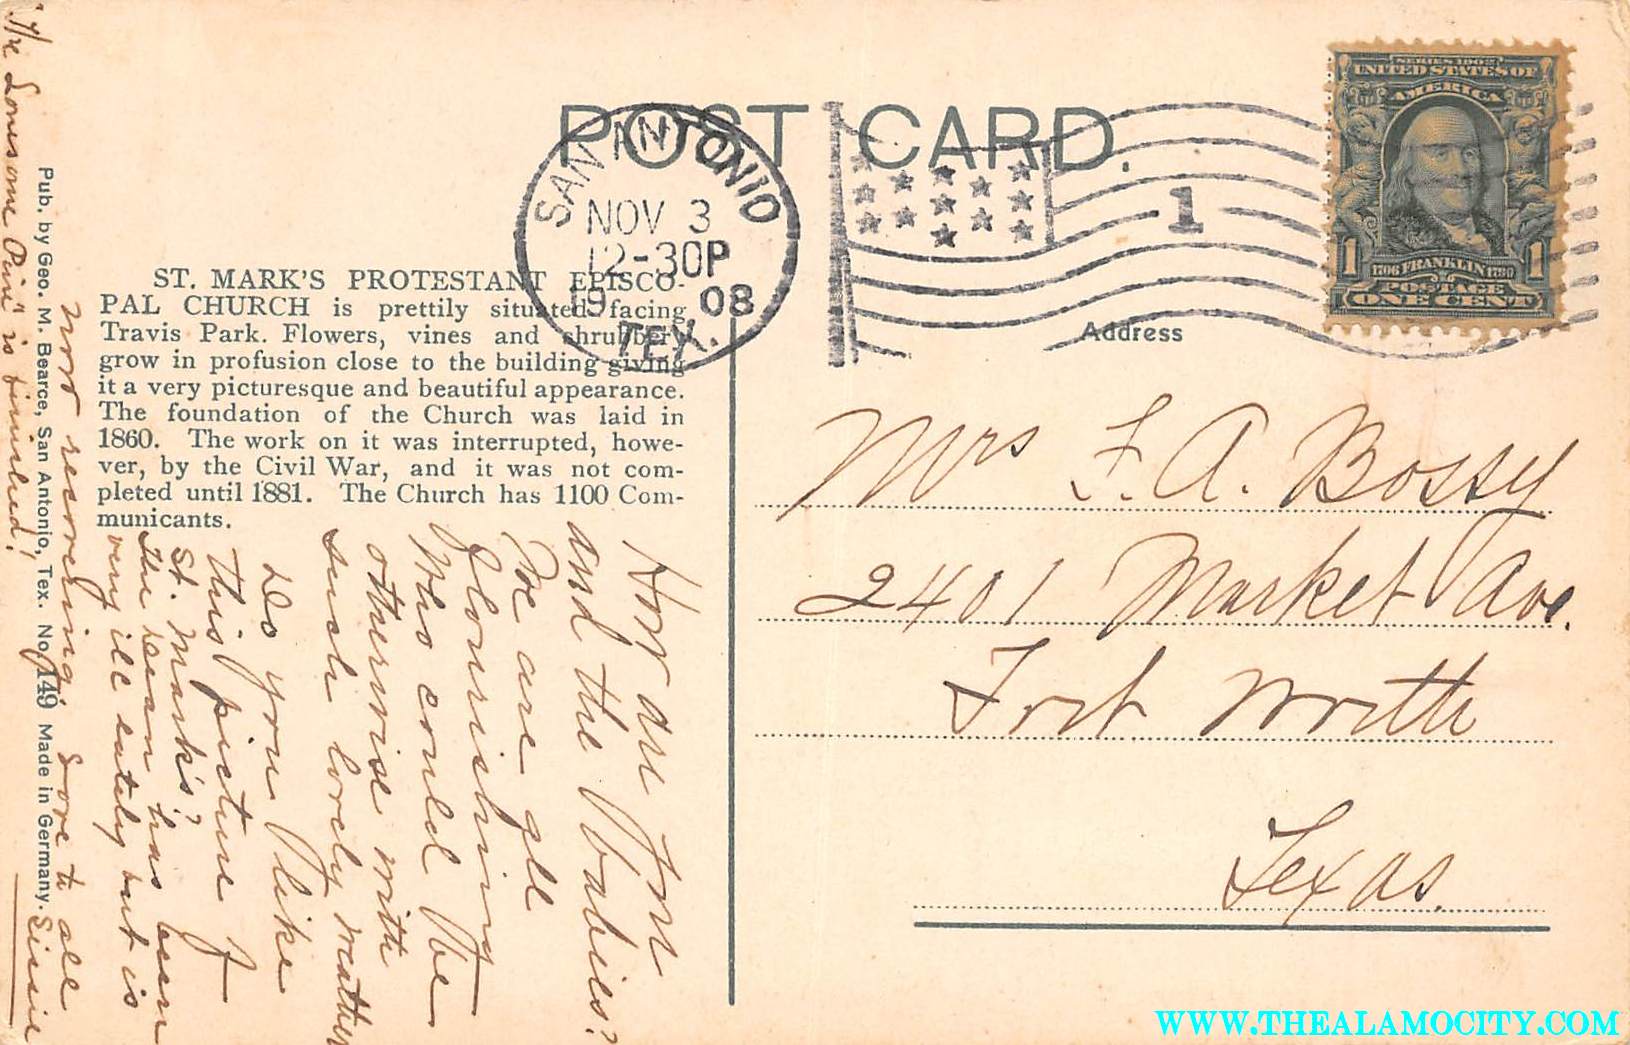 POST CARD.
SAN ANTONIO
NOV 3
12-30P
19 08
TEX.
1
SERIES 1902
UNITED STATES OF
AMERICA
1 1706 FRANKLIN 1790 1
POSTAGE
ONE CENT
ST. MARK'S PROTESTANT EPISCO-
PAL CHURCH is prettily situated facing
Travis Park. Flowers, vines and shrubbery
grow in profusion close to the building giving
it a very picturesque and beautiful appearance.
The foundation of the Church was laid in
1860. The work on it was interrupted, howe-
ver, by the Civil War, and it was not com-
pleted until 1881. The Church has 1100 Com-
municants.
Address
Mrs F. A. Bossy
2401 Market Ave.
Fort Worth
Texas.
How are you
and the babies?
We are all
flourishing
Who could be
otherwise with
such lovely weather
Do you like
this picture of
St. Mark's?
The dean has been
very ill lately but is
now recovering. Love to all
Pub. by Geo. M. Bearce, San Antonio, Tex. No. 149 Made in Germany.
"The Lonesome Pine" is finished!
WWW.THEALAMOCITY.COM